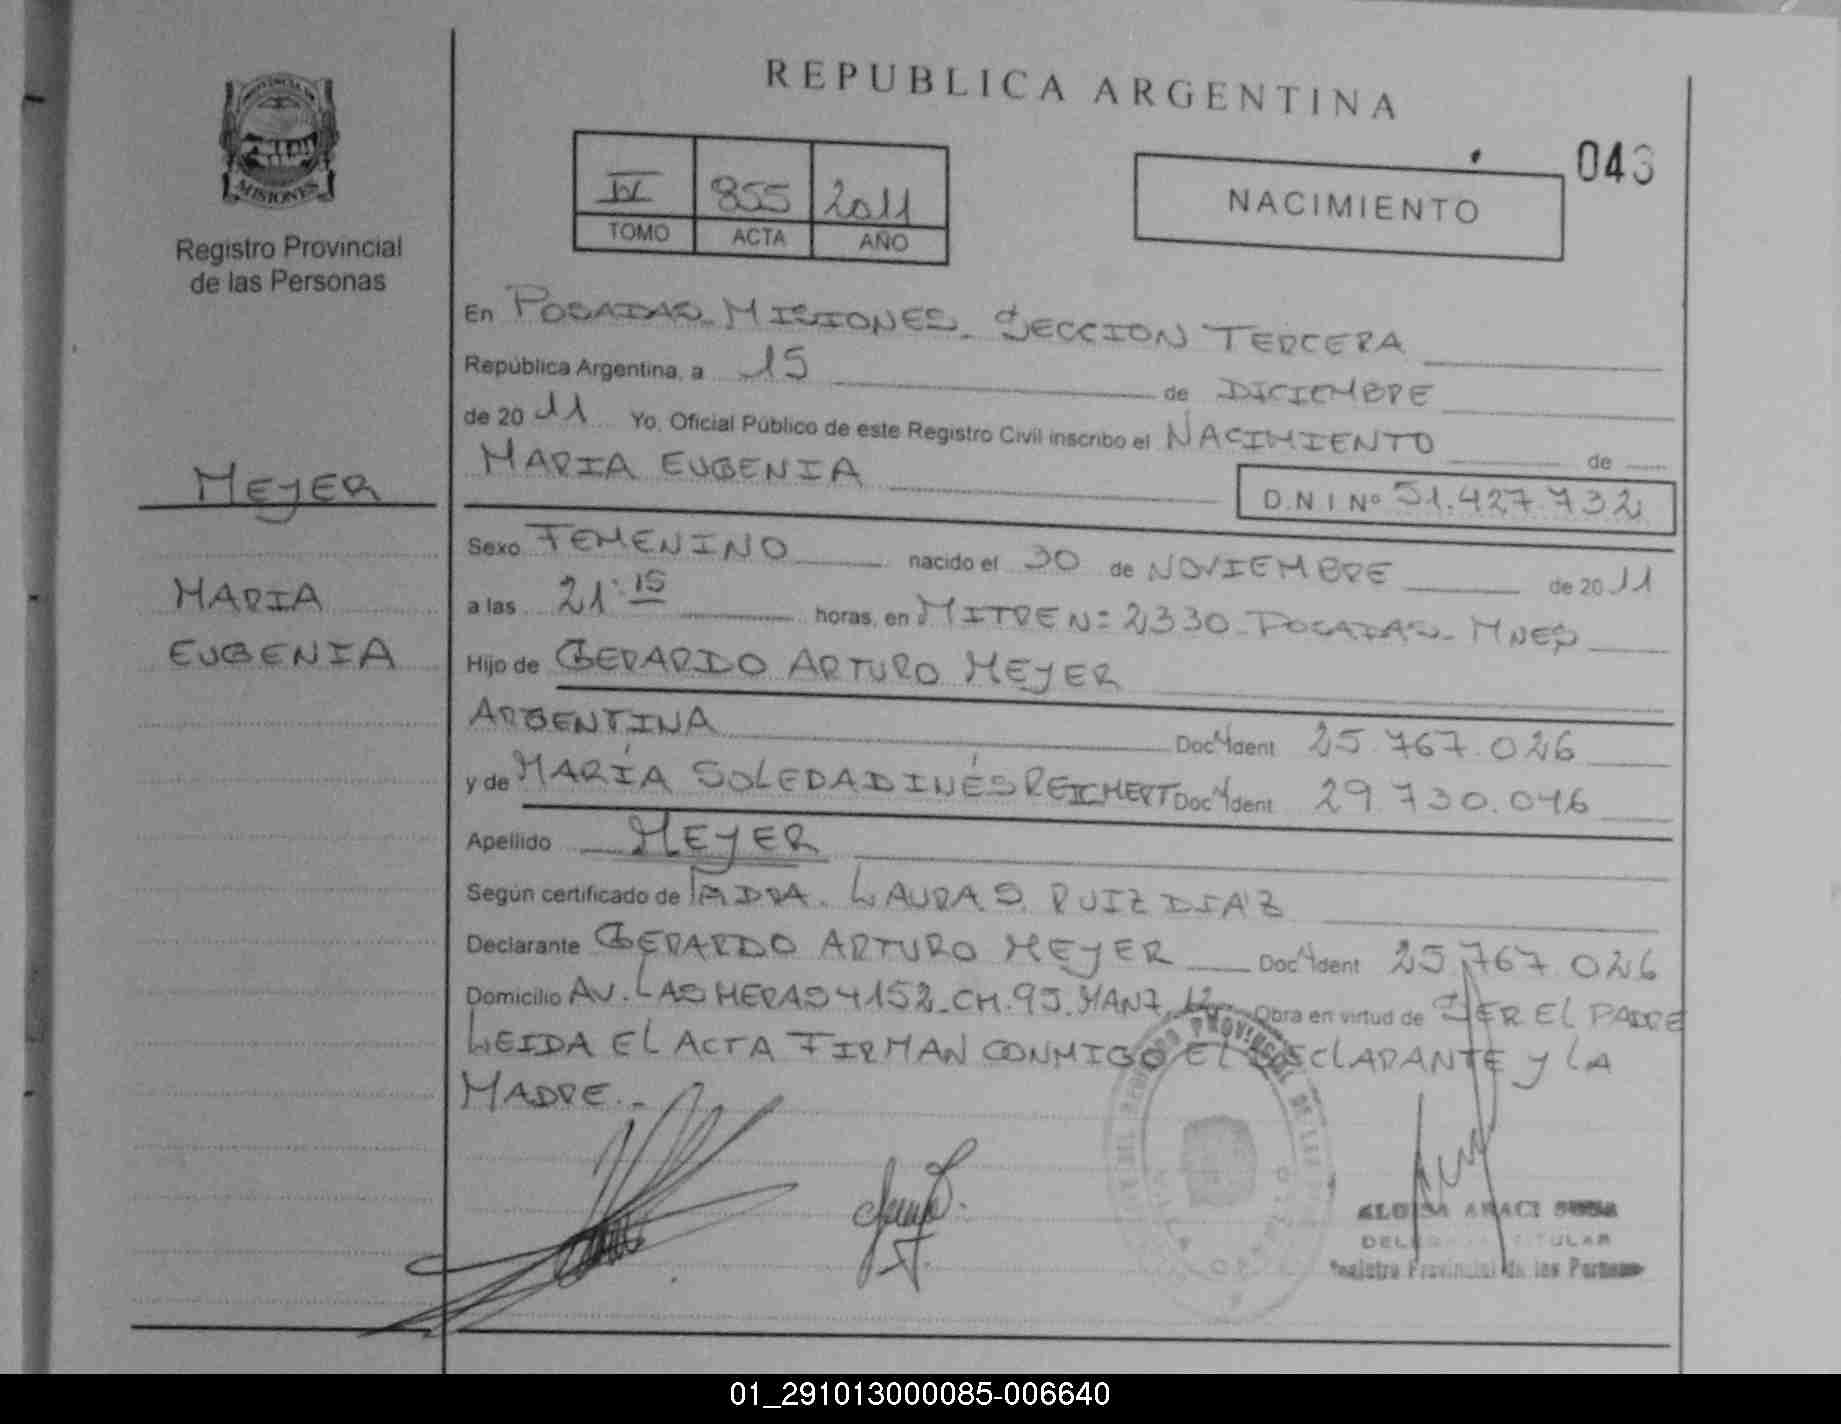 REPUBLICA ARGENTINA
PROVINCIA DE
MISIONES
Registro Provincial
de las Personas
IV 855 2011
TOMO ACTA AÑO
NACIMIENTO
043
En POSADAS-MISIONES-SECCION TERCERA
República Argentina, a 15 de DICIEMBRE
de 2011 Yo, Oficial Público de este Registro Civil inscribo el NACIMIENTO de
MARIA EUGENIA
D.N.I Nº 51.427.732
MEYER
MARIA
EUGENIA
Sexo FEMENINO nacido el 30 de NOVIEMBRE de 2011
a las 21:15 horas, en MITRE Nº 2330-POSADAS-MNES
Hijo de GERARDO ARTURO MEYER
ARGENTINA Doc. Ident 25.767.026
y de MARÍA SOLEDAD INÉS REICHERT Doc. Ident 29.730.046
Apellido MEYER
Según certificado de DRA. LAURA S. RUIZ DIAZ
Declarante GERARDO ARTURO MEYER Doc. Ident 25.767.026
Domicilio AV. LAS HERAS 4152-CH.95.MANZ.12 Obra en virtud de SER EL PADRE
LEIDA EL ACTA FIRMAN CONMIGO EL DECLARANTE Y LA
MADRE.-
ARACI
Registro Provincial de las Personas
01_291013000085-006640